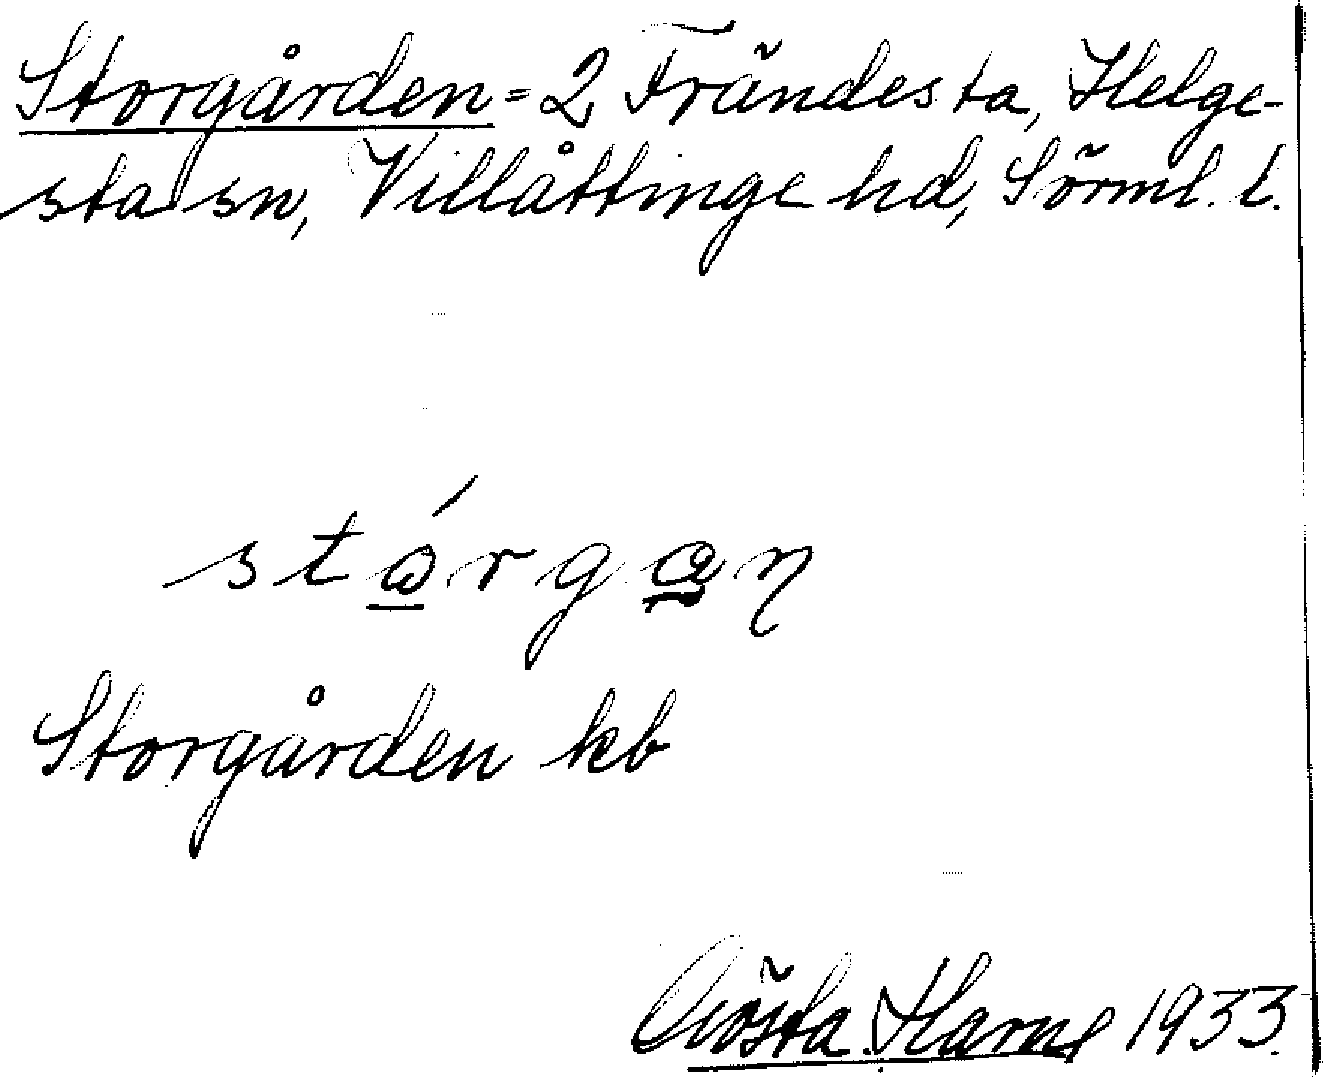 Storgården = 2 Frändesta, Helge-
sta sn, Villåttinge hd, Sörml. l.
stɷ́rgan̥
Storgården kb
Gösta Harne 1933.